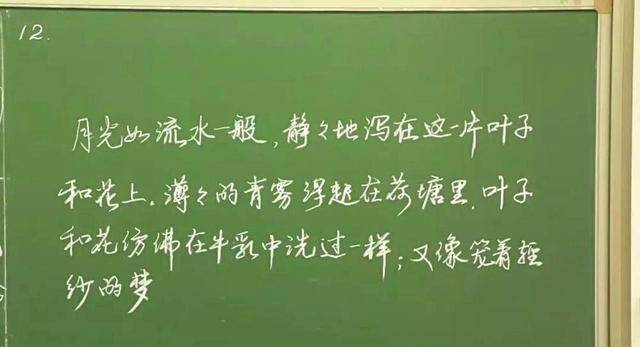 12.
月光如流水一般,静々地泻在这一片叶子
和花上。薄々的青雾浮起在荷塘里.叶子
和花仿佛在牛乳中洗过一样;又像笼着轻
纱的梦